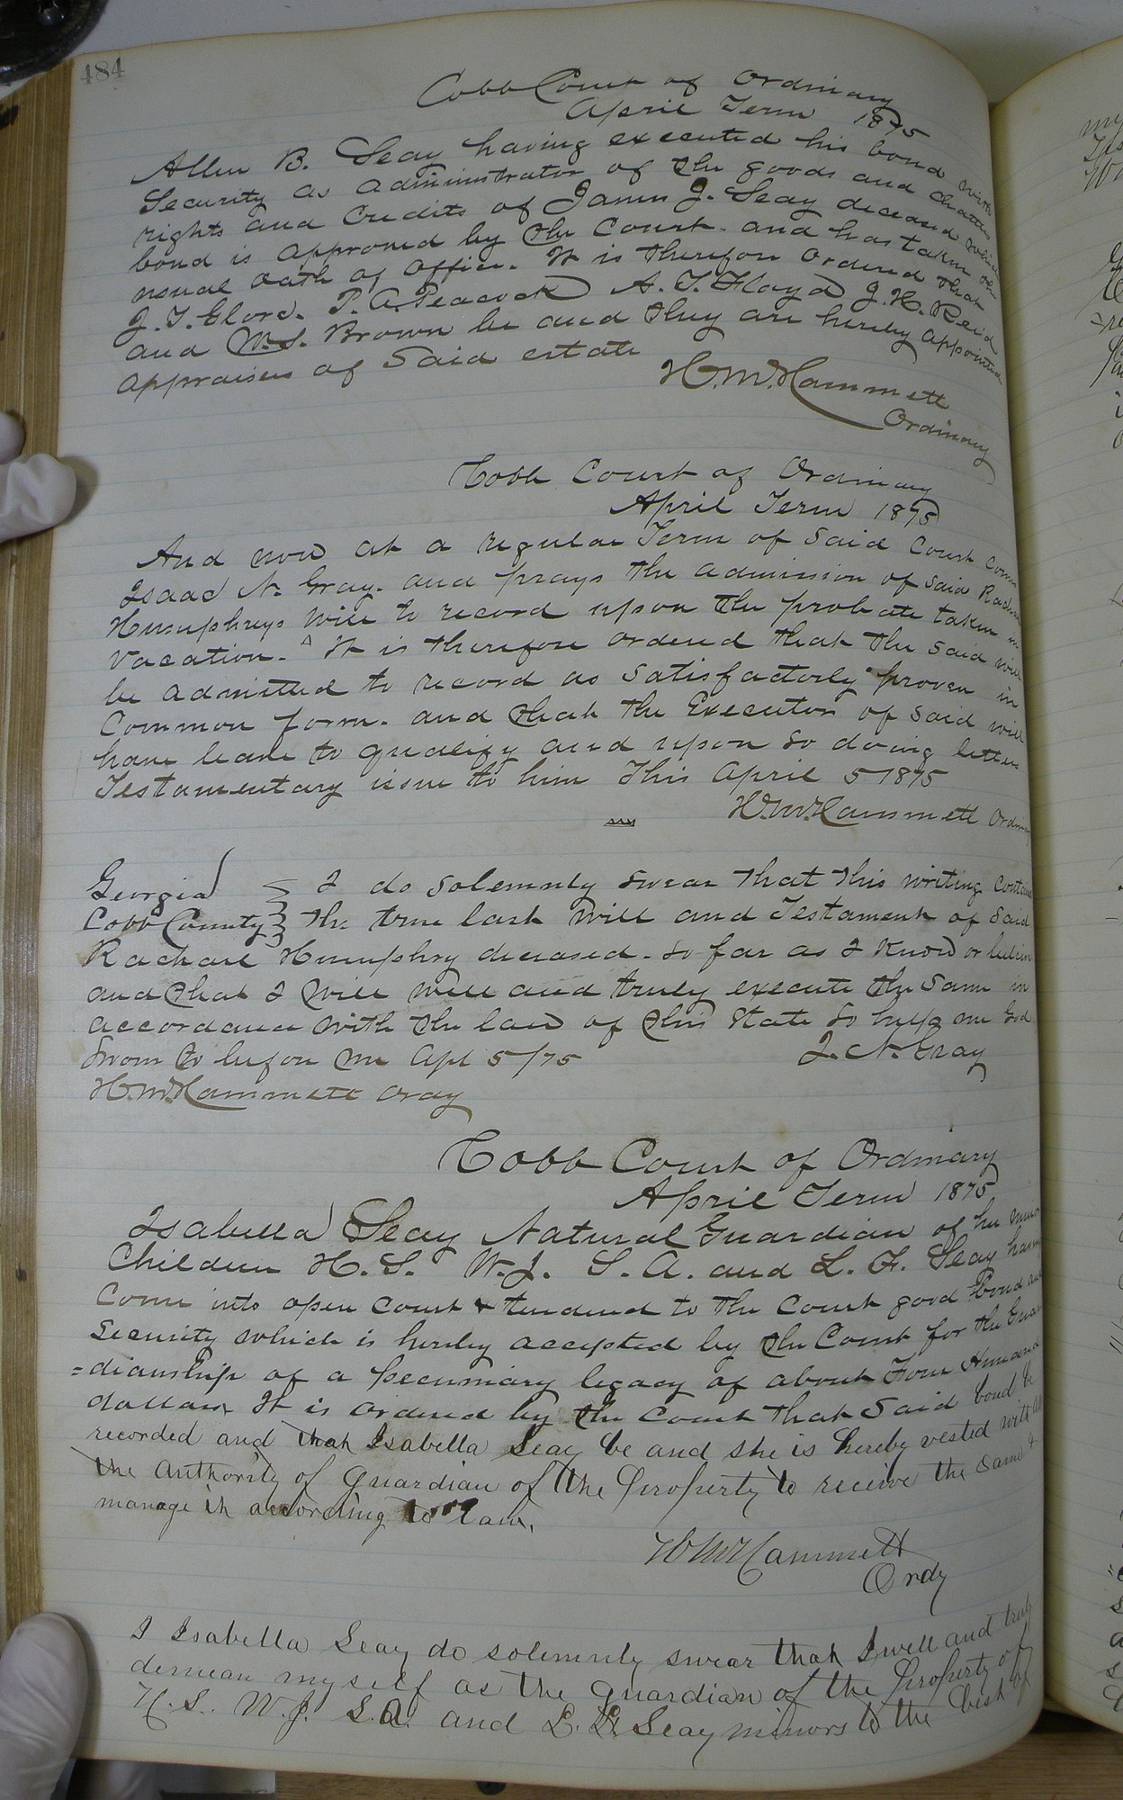 484
Cobb Court of Ordinary
April Term 1875
Allen B. Seay having executed his bond with
Security as administrator of the goods and chattels
rights and Credits of James J. Seay deceased which
bond is approved by the Court. and has taken the
usual oath of office. It is therefore ordered that
J. T. P. A. Peacock A. T. Floyd J. H. Reid
and W. S. Brown be and they are hereby appointed
appraisers of Said estate
H. M. Hammett
Ordinary
Cobb Court of Ordinary
April Term 1875
And now at a regular Term of Said Court Comes
Isaac N. Gray. and prays the admission of Said Rachael
Humphreys Will to record upon the probate taken in
Vacation. It is therefore ordered that the Said will
be admitted to record as Satisfactorly proven in
Common form. and that the Executor of Said will
have leave to qualify and upon So doing letters
Testamentary issue to him This April 5 1875
H. M. Hammett Ordinary
Georgia I do Solemnly Swear that this writing Contains
Cobb County the true last Will and Testament of Said
Rachael Humphry deceased. So far as I Know or believe
and that I Will well and truly execute the Same in
accordance with the law of this State So help me God
Sworn to before me Apl 5/75 I. N. Gray
H. M. Hammett Ordy
Cobb Court of Ordinary
April Term 1875
Isabella Seay Natural Guardian of her minor
Children H. S. W. J. S. A. and L. F. Seay having
Come into open Court & tendered to the Court good Bond and
Security which is hereby accepted by the Court for the Guar
=dianship of a pecuniary legacy of about Four Hundred
dollars It is ordered by the Court that Said bond be
recorded and that Isabella Seay be and she is hereby vested with all
the authority of guardian of the property to receive the same &
manage it according to law.
H M Hammett
Ordy
I Isabella Seay do solemnly swear that I will well and truly
demean myself as the guardian of the property of
H. S. W. J. S. A. and L. F. Seay minors to the best of